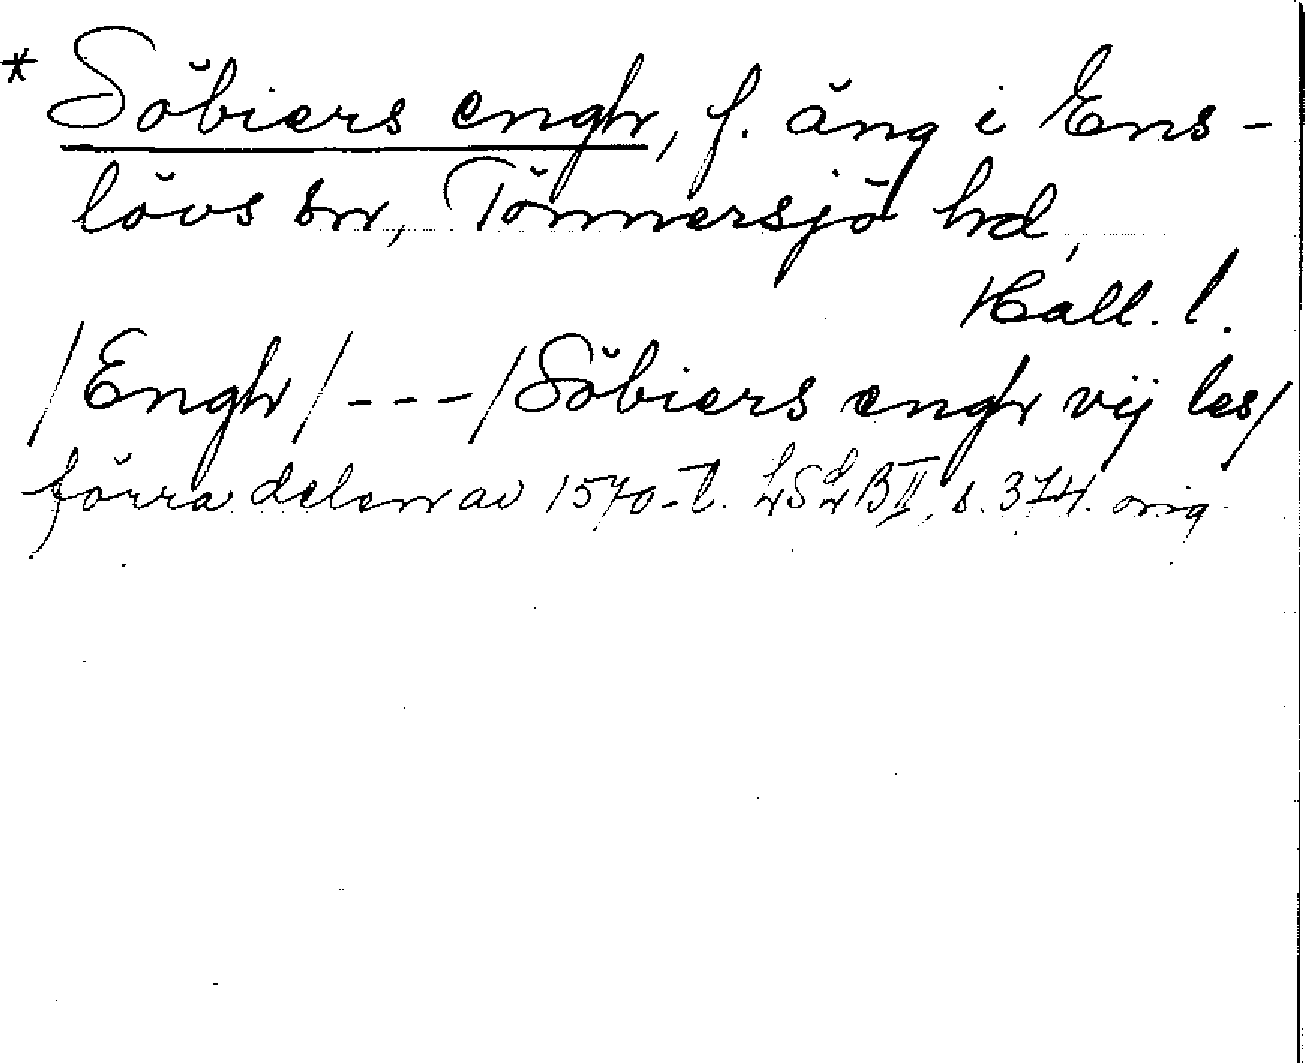 * Söbiers engh, f. äng i Ens-
lövs sn, Tönnersjö hd,
Hall. l.
/Engh/---/Söbiers engh vij les/
förra delen av 1570-t. LSLB II, s. 374. orig.